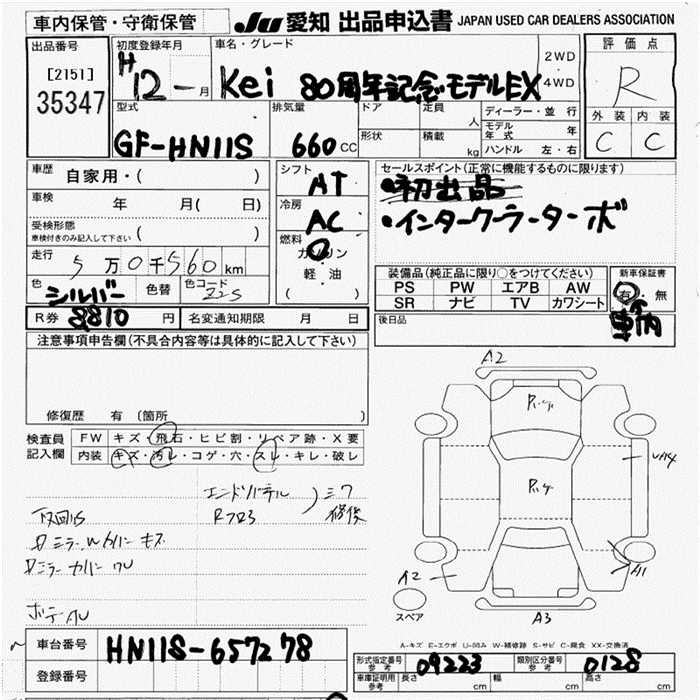 車内保管・守衛保管 JU 愛知 出品申込書 JAPAN USED CAR DEALERS ASSOCIATION
出品番号 初度登録年月 車名・グレード 2WD 評価点
[2151] H12-月 Kei 80周年記念モデルEX 4WD R
35347
型式 排気量 ドア 定員 人 ディーラー・並行 外装 内装
GF-HN11S 660cc 形状 積載 kg モデル年式 年 C C
ハンドル 左・右
車歴 自家用・( ) シフト AT セールスポイント(正常に機能するものに限ります)
・初出品
車検 年 月( 日) 冷房 AC ・インタークーラーターボ
受検形態
車検付きのみ記入して下さい ( ) 燃料 ガソリン
走行 5万0千560km 軽・油
( )
装備品(純正品に限り○をつけてください) 新車保証書
PS PW エアB AW 有・無
SR ナビ TV カワシート 車内
色 シルバー 色替 色コード Z2S
R券 8810円 名変通知期限 月 日 後日品
注意事項申告欄(不具合内容等は具体的に記入して下さい)
修復歴 有 (箇所 )
検査員 FW キズ・飛石・ヒビ割・リペア跡・X要
記入欄 内装 キズ・汚レ・コゲ・穴・スレ・キレ・破レ
エンドパネル
RフロS
ミラー
キズ
ミラー カバー
A2
A2
A1
スペア A3
A-キズ E-エクボ U-凹み W-補修跡 S-サビ C-腐食 XX-交換済
車台番号 HN11S-657278
登録番号
形式指定番号 参考 09223 類別区分番号 参考 0128
車庫証明用 参考 長さ cm 幅 cm 高さ cm